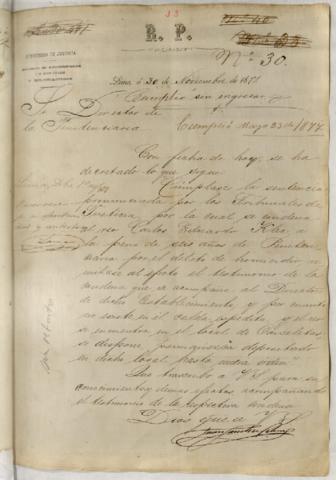 33
R. P.
MINISTERIO DE JUSTICIA
Nº 30.
Lima á 30 de Noviembre de 187
Cumplió sin ingresar
Sr. Director de
la Penitenciaria
Cumplió Marzo 23 de 1877
Con fecha de hoy, se ha
decretado lo que sigue
Cúmplase la sentencia
pronunciada por los Tribunales de
Justicia, por la cual se condena
al reo Carlos Eduardo
la pena de seis años de Peniten
ciaria por el delito de homicidio re
mítase al efecto el testimonio de la
condena que se acompaña al Director
de dicho Establecimiento, y por cuanto
no existe en él celda expedita y el reo
se encuentra en el local de Carceletas,
se dispone permanezca depositado
en dicho local hasta nueva orden"
Que trascribo á VS. para su
conocimiento y demas efectos acompañando
el testimonio de la respectiva condena
Dios gue. á VS.